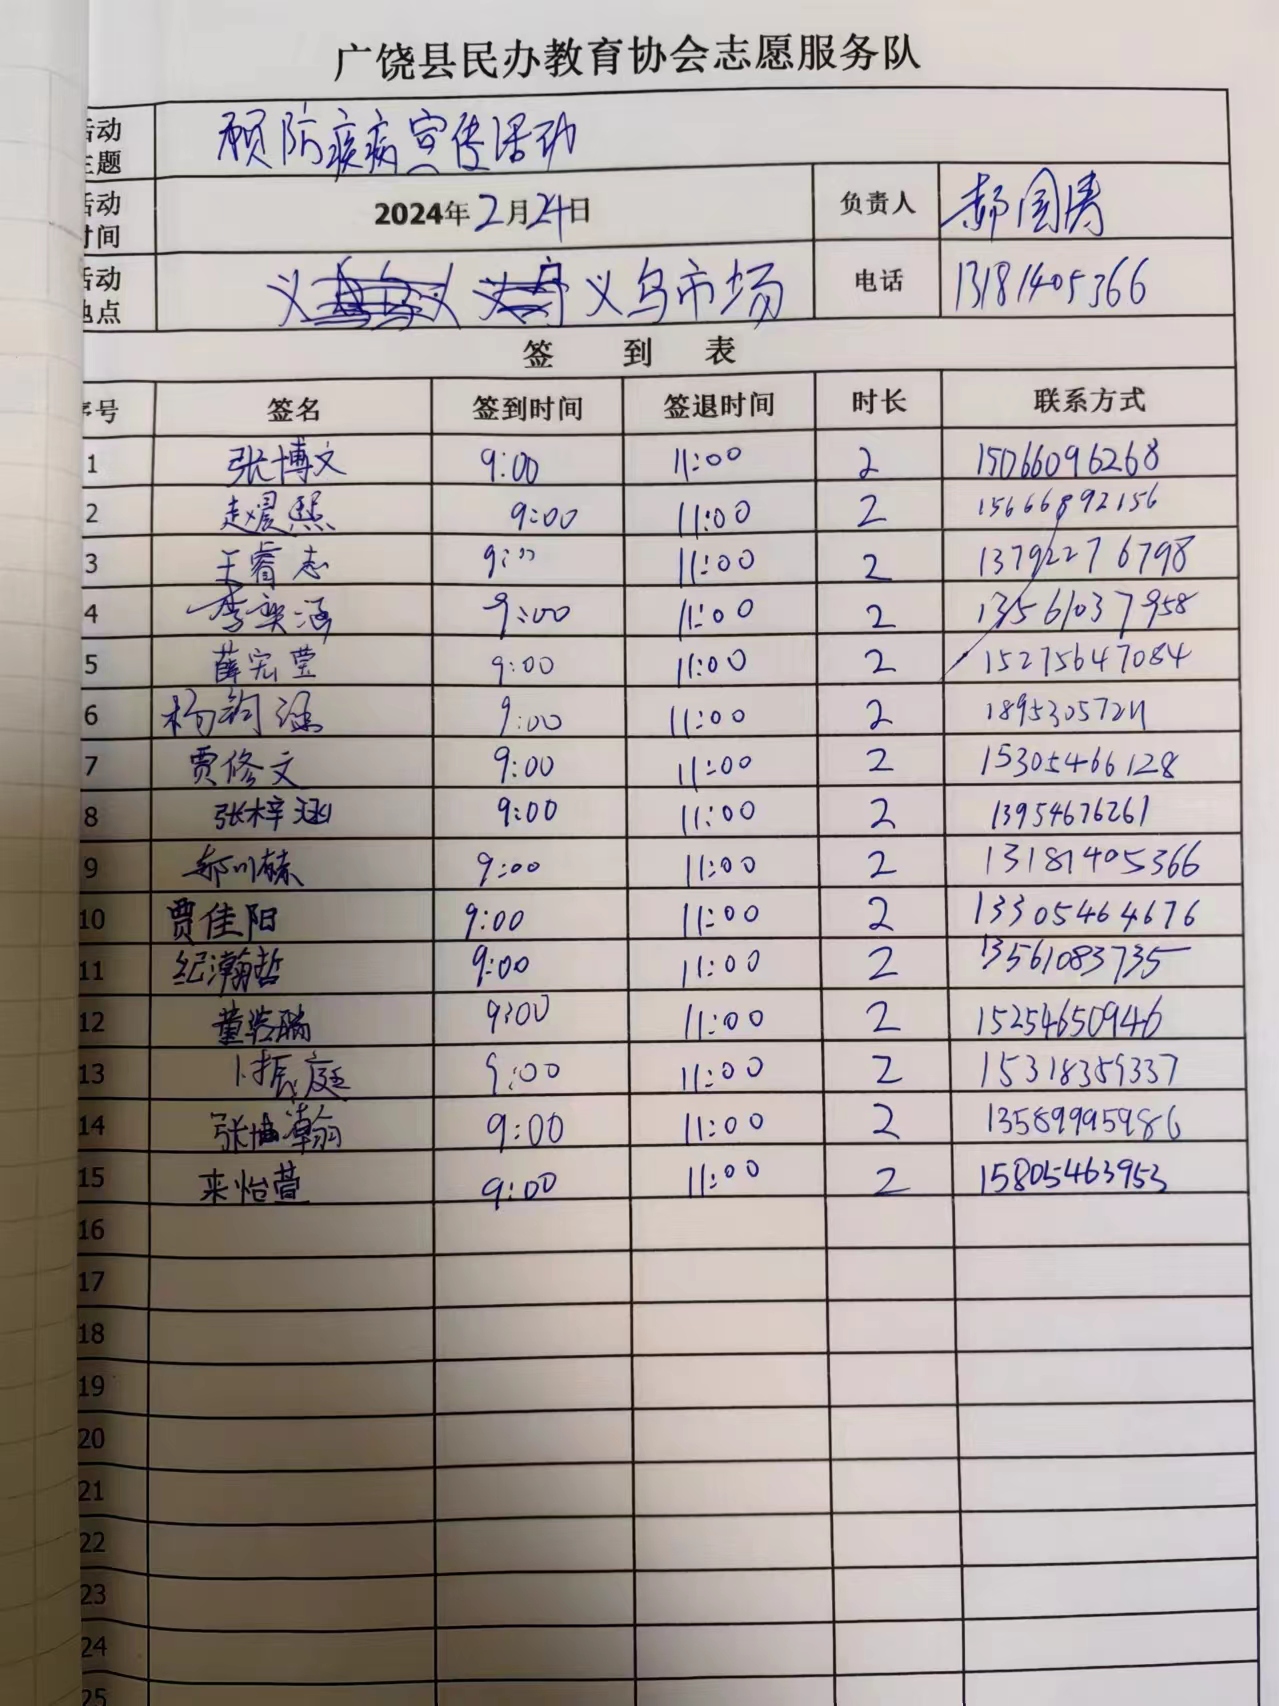 广饶县民办教育协会志愿服务队
活动主题 预防疾病宣传活动
活动时间 2024年2月24日 负责人 郝国涛
活动地点 义乌市场 电话 13181405366
签到表
序号 签名 签到时间 签退时间 时长 联系方式
1 张博文 9:00 11:00 2 15066096268
2 赵晨熙 9:00 11:00 2 15666892156
3 王睿志 9:00 11:00 2 13792276798
4 李奕涵 9:00 11:00 2 13561037958
5 薛宏莹 9:00 11:00 2 15275647084
6 杨钧 9:00 11:00 2 18953057211
7 贾修文 9:00 11:00 2 15305466128
8 张梓涵 9:00 11:00 2 13954676261
9 郝川赫 9:00 11:00 2 13181405366
10 贾佳阳 9:00 11:00 2 13305464676
11 纪瀚哲 9:00 11:00 2 13561083735
12 董 9:00 11:00 2 15254650946
13 卜振庭 9:00 11:00 2 15318359337
14 张 瀚 9:00 11:00 2 13589995986
15 来怡萱 9:00 11:00 2 15805463953
16
17
18
19
20
21
22
23
24
25